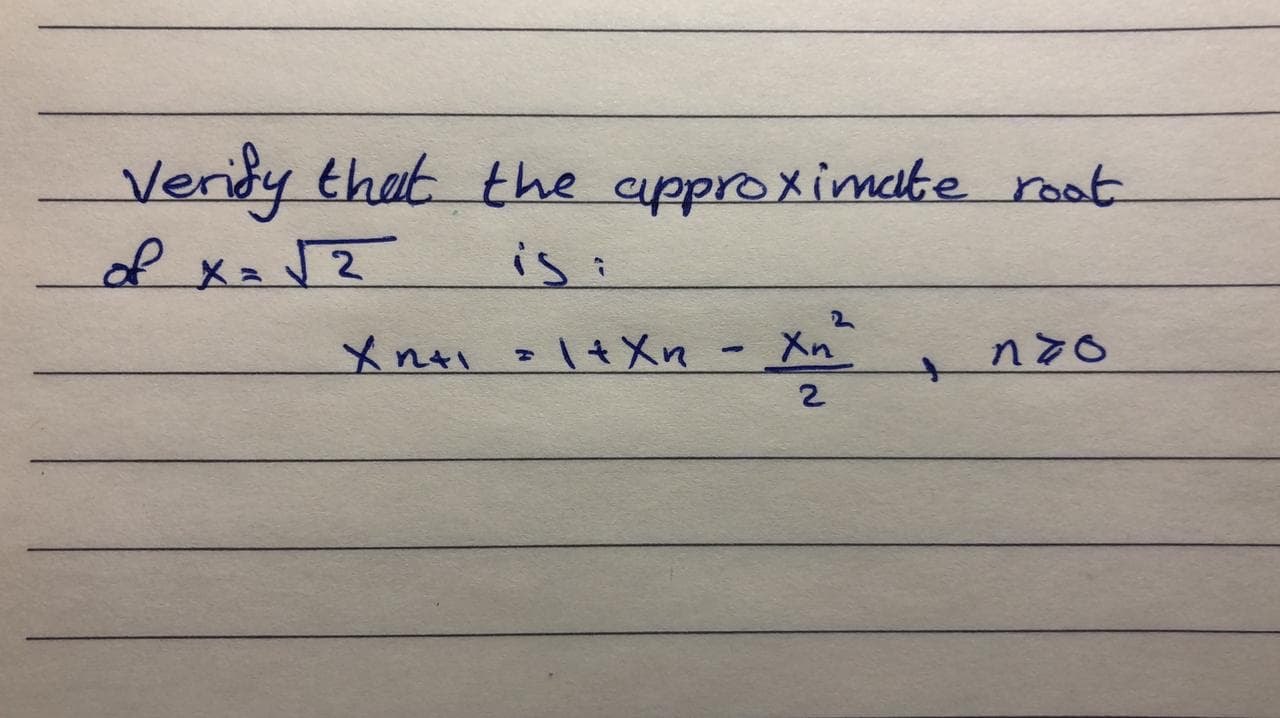 Verify that the approximate root
of x = √2 is:
xn+1 = 1 + xn - xn²/2 , n ⩾ 0